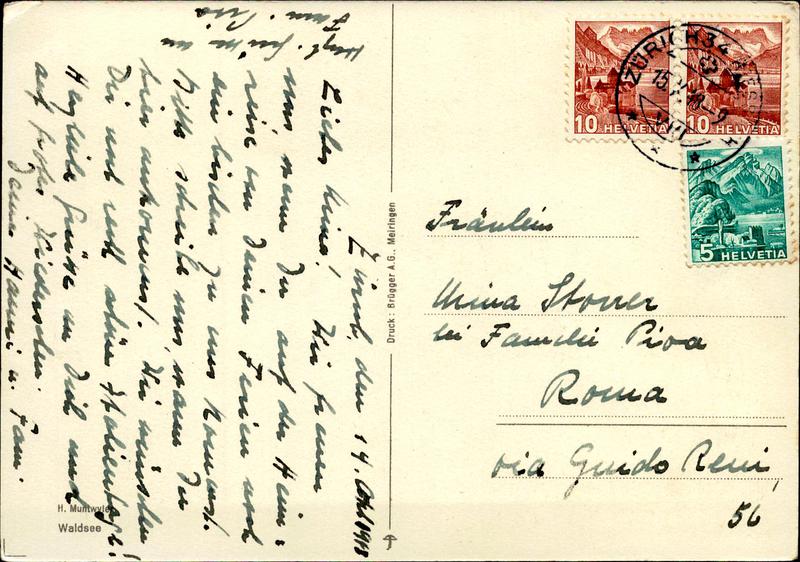 Zürich, den 14. Okt. 1948
Liebes Mina! Wir freuen
uns, wenn Du auf der Heim=
reise von Deinen Ferien noch
ein bischen zu uns kommst.
Bitte schreib uns, wann Du
hier ankommst. Wir wünschen
Dir und recht schöne
Herzliche Grüsse an Dich und
auf frohes Wiedersehen.
Deine Hanni u. Fam.
Herzl. Grüsse an
Fam. Piva
H. Muntwyler
Waldsee
Druck: Brügger A.G., Meiringen
ZÜRICH 34
10 HELVETIA
10 HELVETIA
5 HELVETIA
Fräulein
Mina Storrer
bei Familie Piva
Roma
via Guido Reni
56